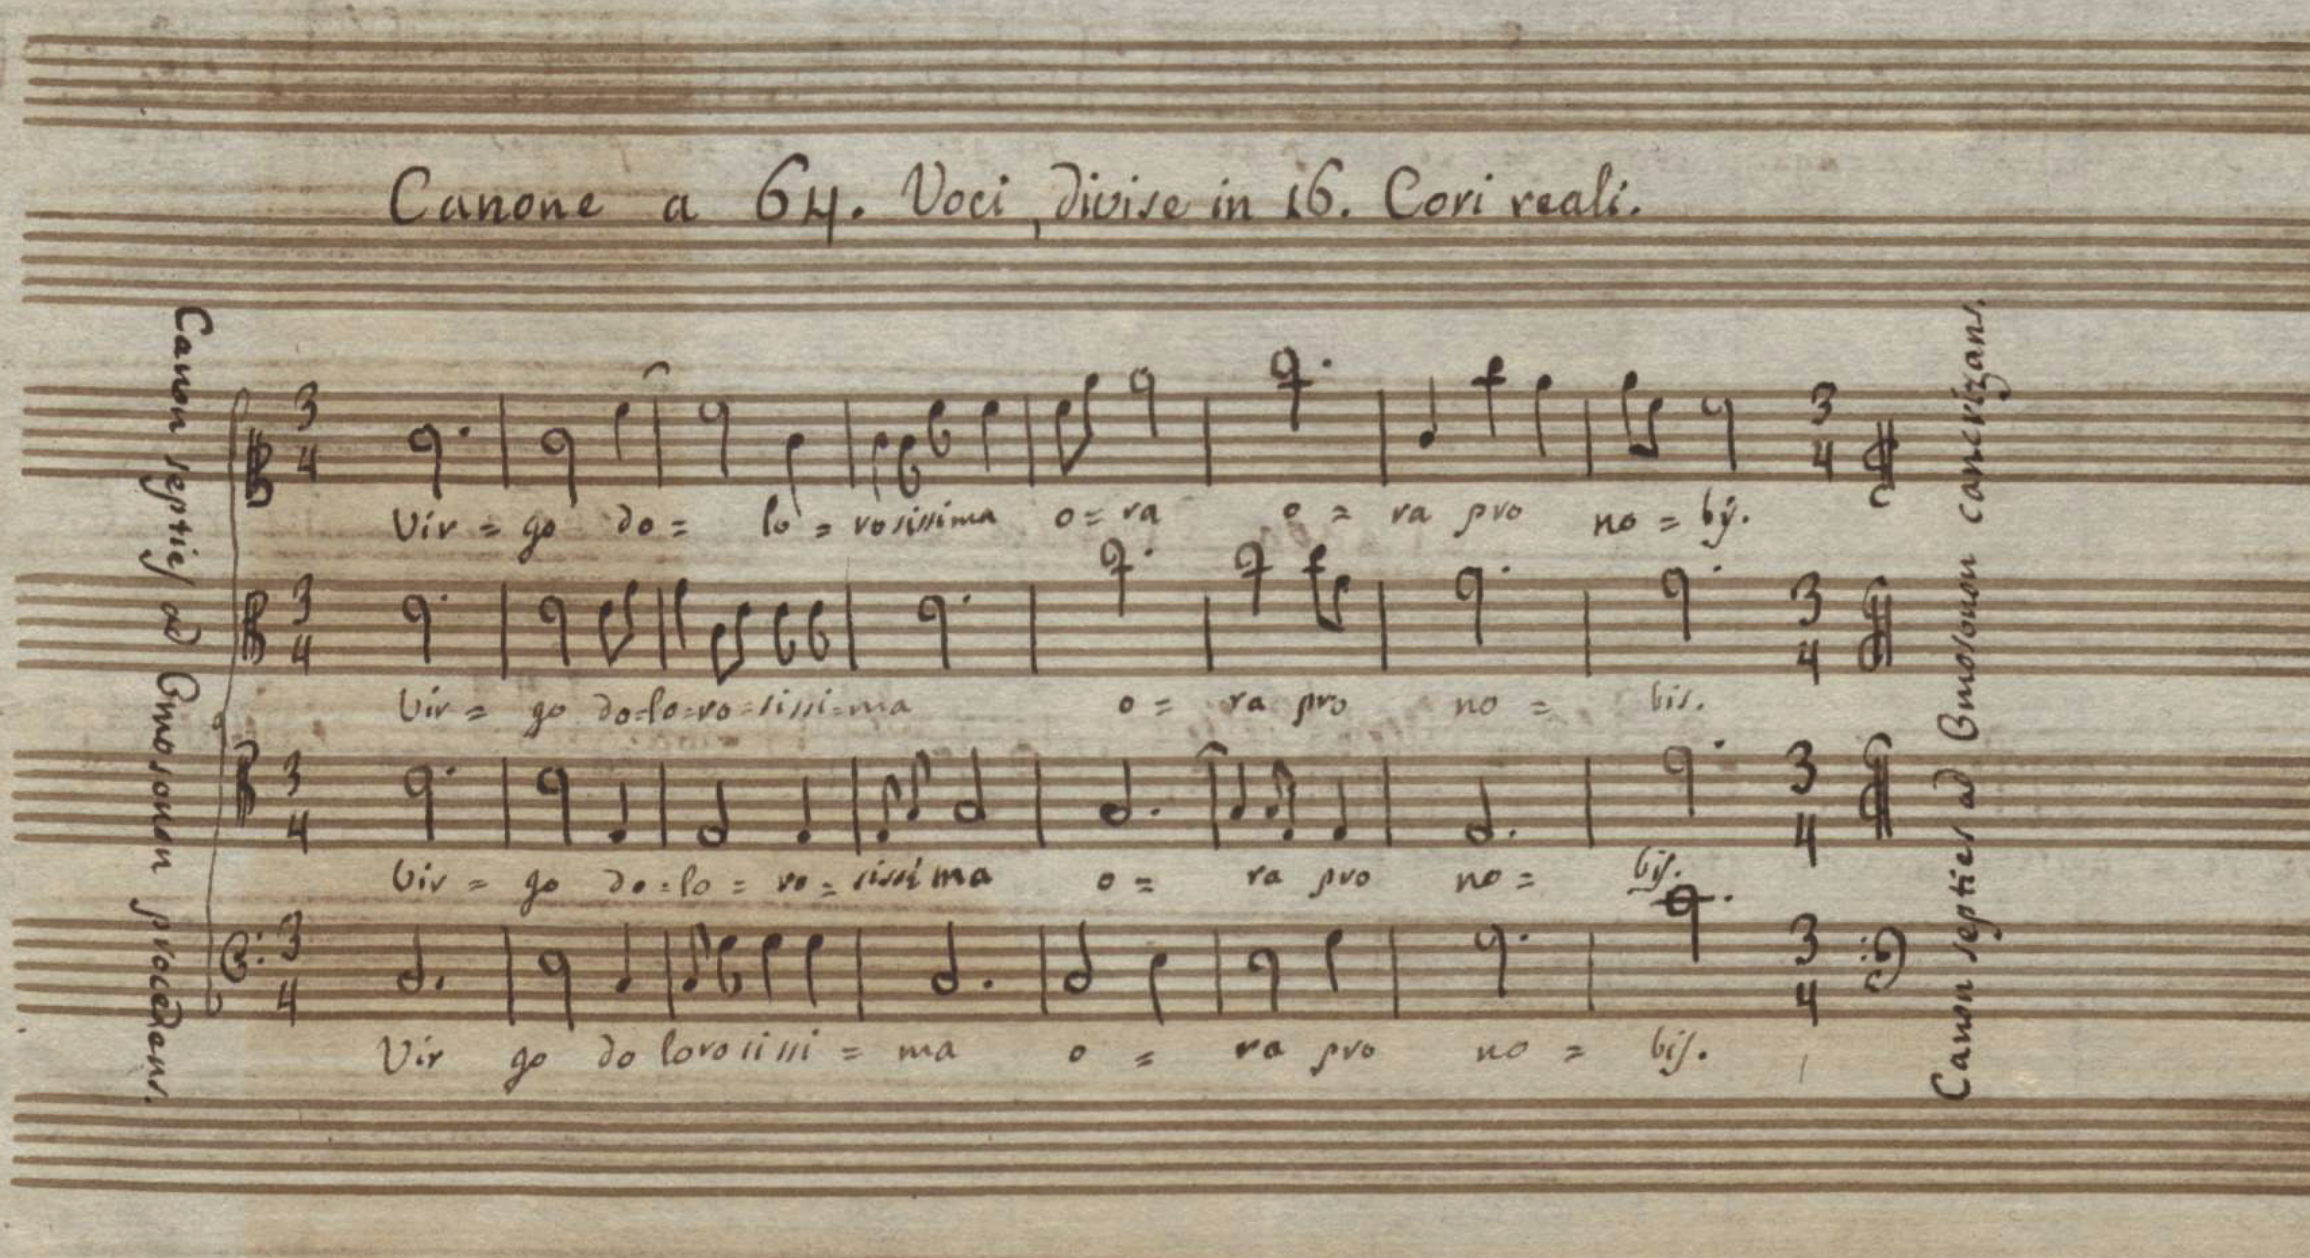 Canone a 64. Voci, divise in 16. Cori reali.
Canon septies ad Omosonon procedens.
3
4
Vir = go do = lo = rosissima o = ra o = ra pro no = bis.
3
4
3
4
Vir = go do=lo=ro=sissi=ma o = ra pro no = bis.
3
4
3
4
Vir = go do=lo = ro = sissi ma o = ra pro no = bis.
3
4
3
4
Vir go do lorosissi = ma o = ra pro no = bis.
3
4
Canon septies ad Omosonon cancrizans.